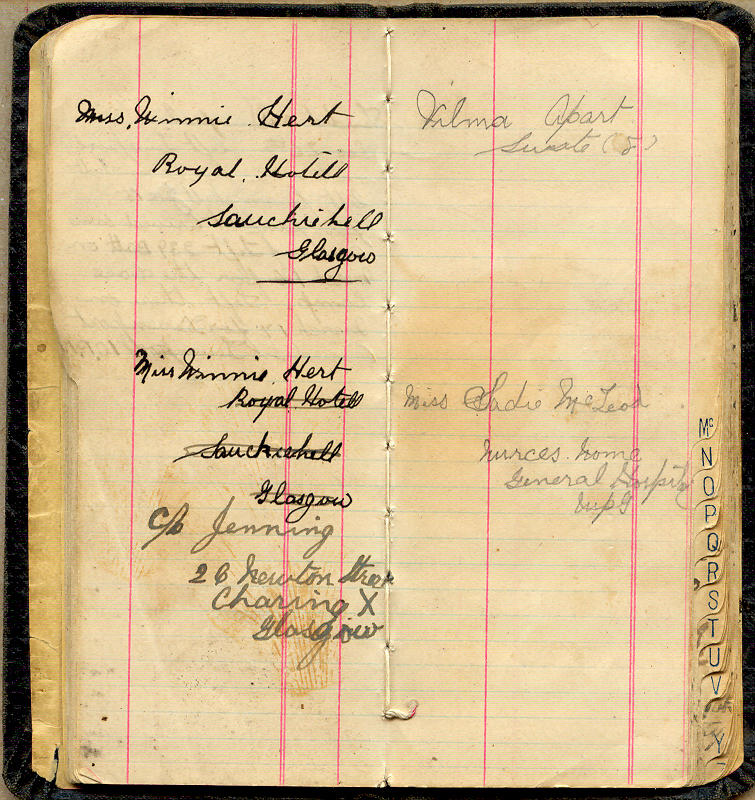 Miss. Winnie Hert
Royal. Hotell
Sauchiehell
Glasgow
Miss Winnie. Hert
Royal Hotell
Sauchiehell
Glasgow
c/o Jenning
26 Newton Street
Charing X
Glasgow
Vilma Apart
Suite
Miss Sadie McLeod
Nurces. home
General Hospital
Wpg
Mc
N
O
P
Q
R
S
T
U
V